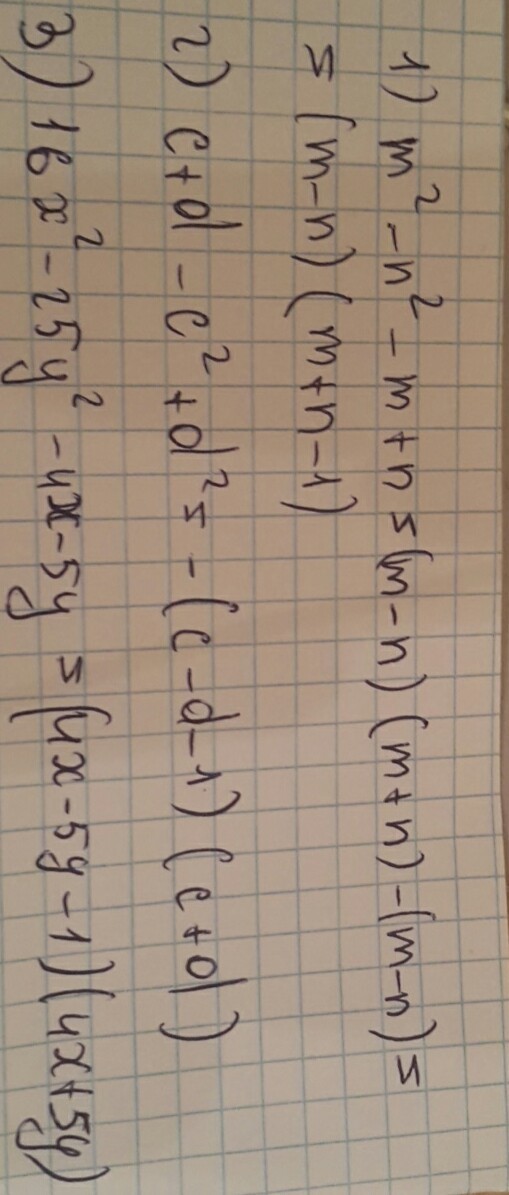 1) m² - n² - m + n = (m - n) (m + n) - (m - n) =
= (m - n) (m + n - 1)
2) c + d - c² + d² = - (c - d - 1) (c + d)
3) 16x² - 25y² - 4x - 5y = (4x - 5y - 1)(4x + 5y)